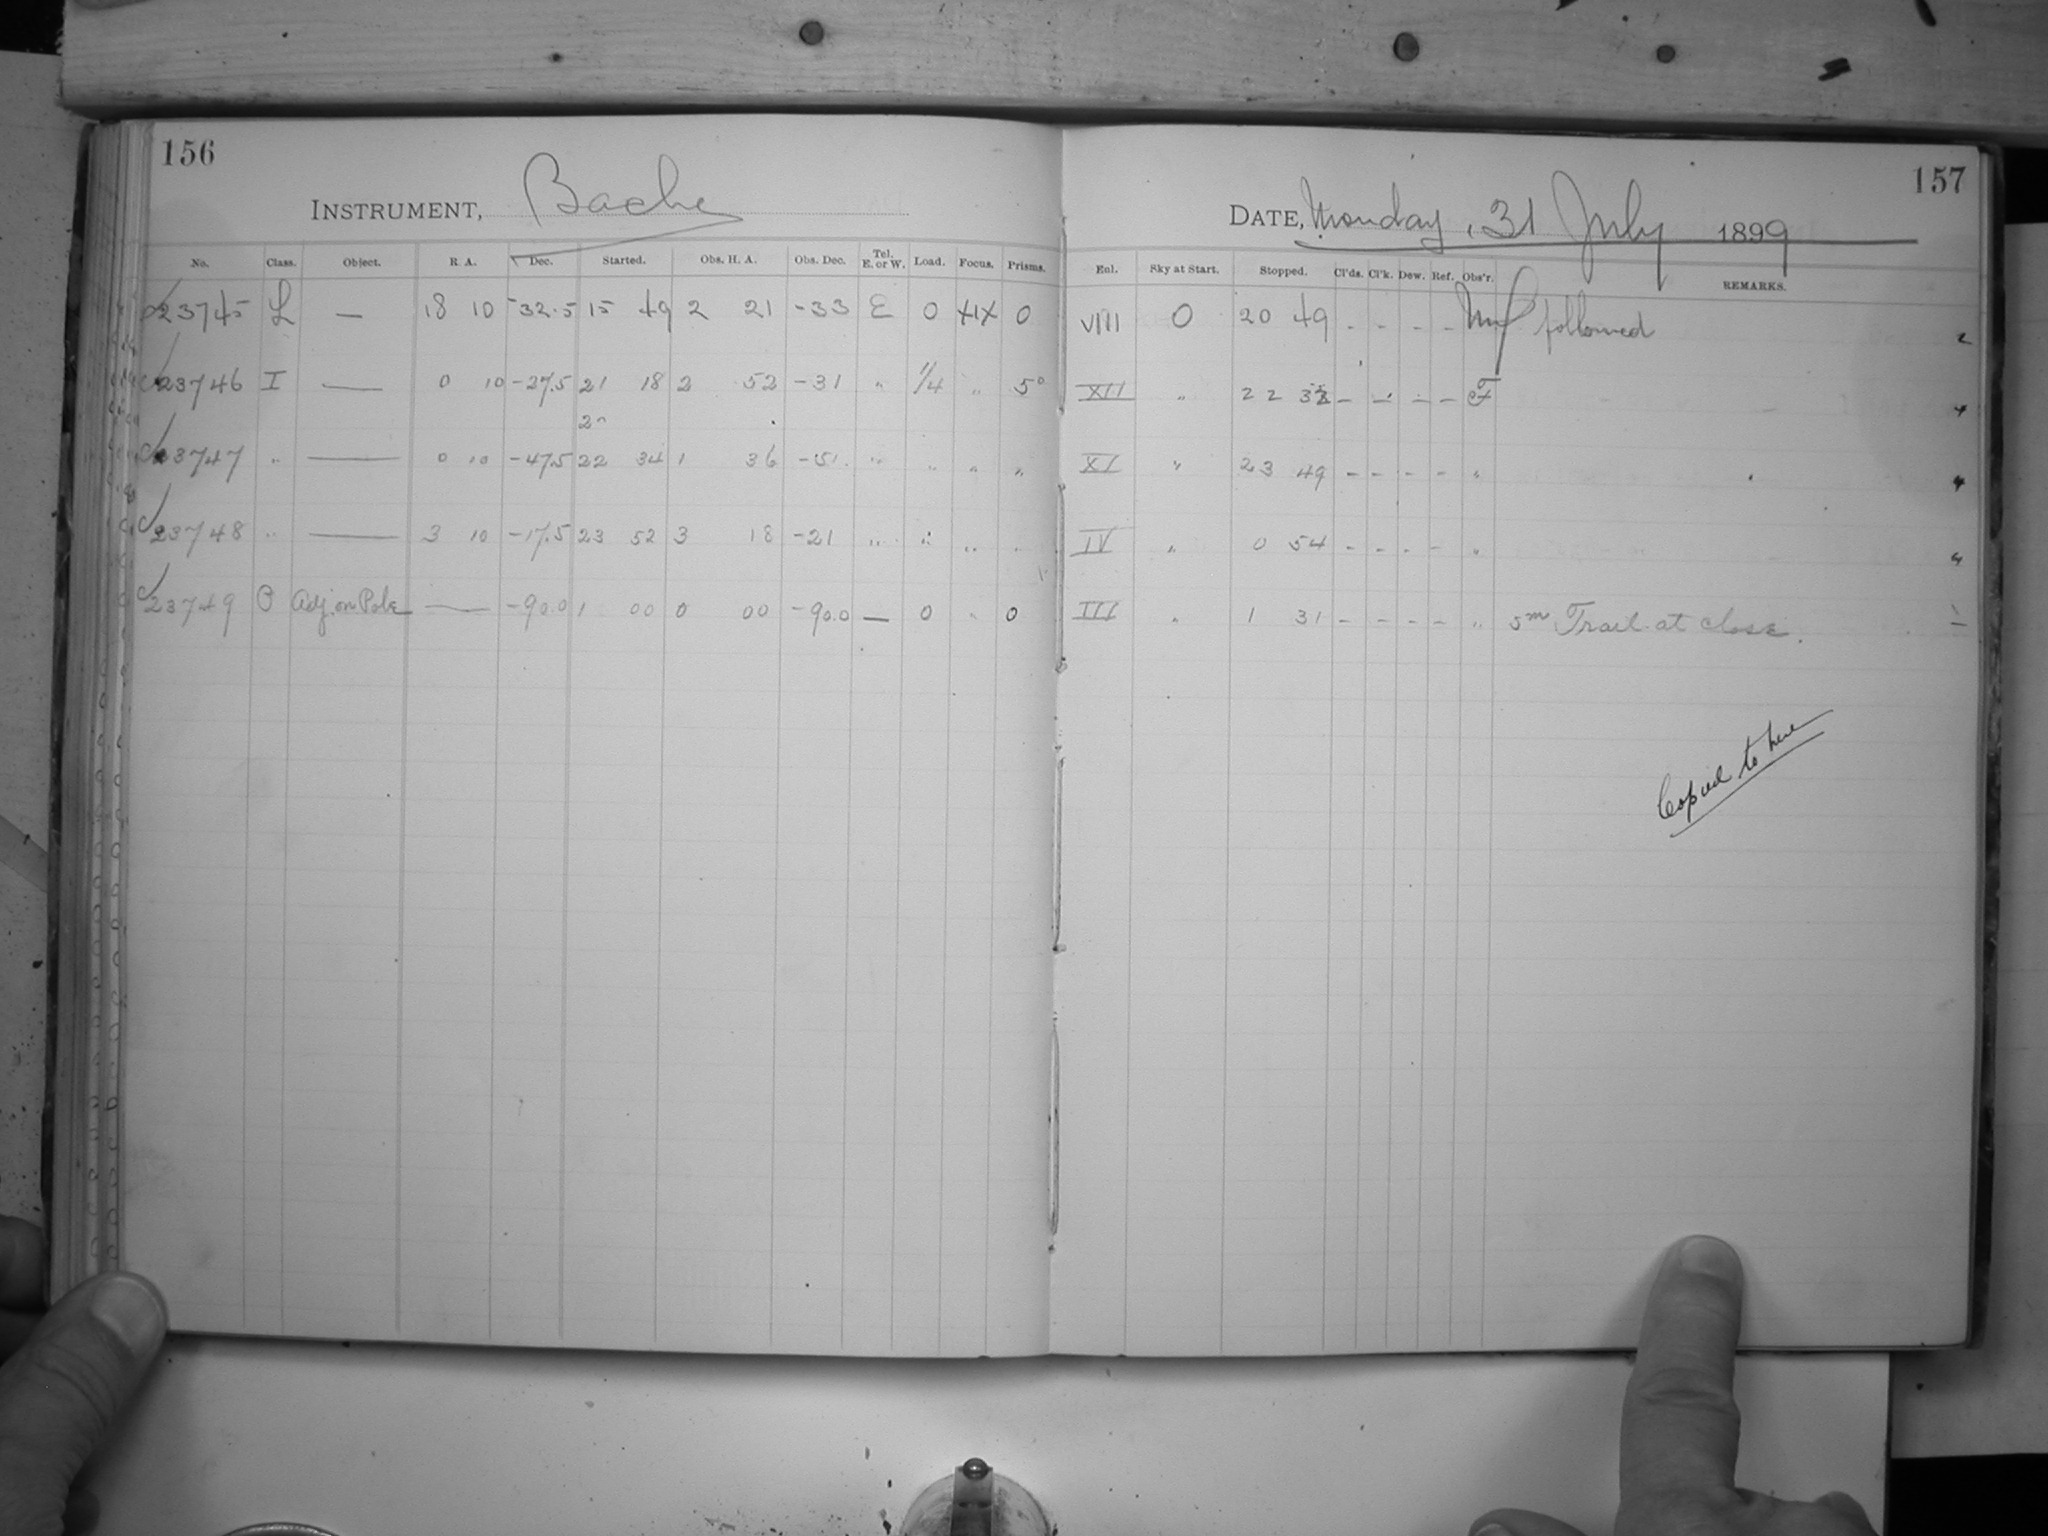 156
INSTRUMENT, Bache
No. Class. Object. R. A. Dec. Started. Obs. H. A. Obs. Dec. Tel. E. or W. Load. Focus. Prisms.
23745 L — 18 10 -32.5 15 49 2 21 -33 E 0 XIX 0
23746 I — 0 10 -27.5 21 18 2 52 -31 " 1/4 " 5°
23747 " — 0 10 -47.5 22 34 1 36 -51. " " " "
23748 " — 3 10 -17.5 23 52 3 18 -21 " " " "
23749 O Adj. on Pole — -90.0 1 00 0 00 -90.0 — 0 " 0
157
DATE, Monday, 31 July 1899
Enl. Sky at Start. Stopped. Cl'ds. Cl'k. Dew. Ref. Obs'r. REMARKS.
VIII 0 20 49 - - - - followed 2
XII " 22 - - - - F 4
XI " 23 49 - - - - " 4
IV " 0 54 - - - - " 4
III " 1 31 - - - - " 5m Trail at close. —
Copied to here